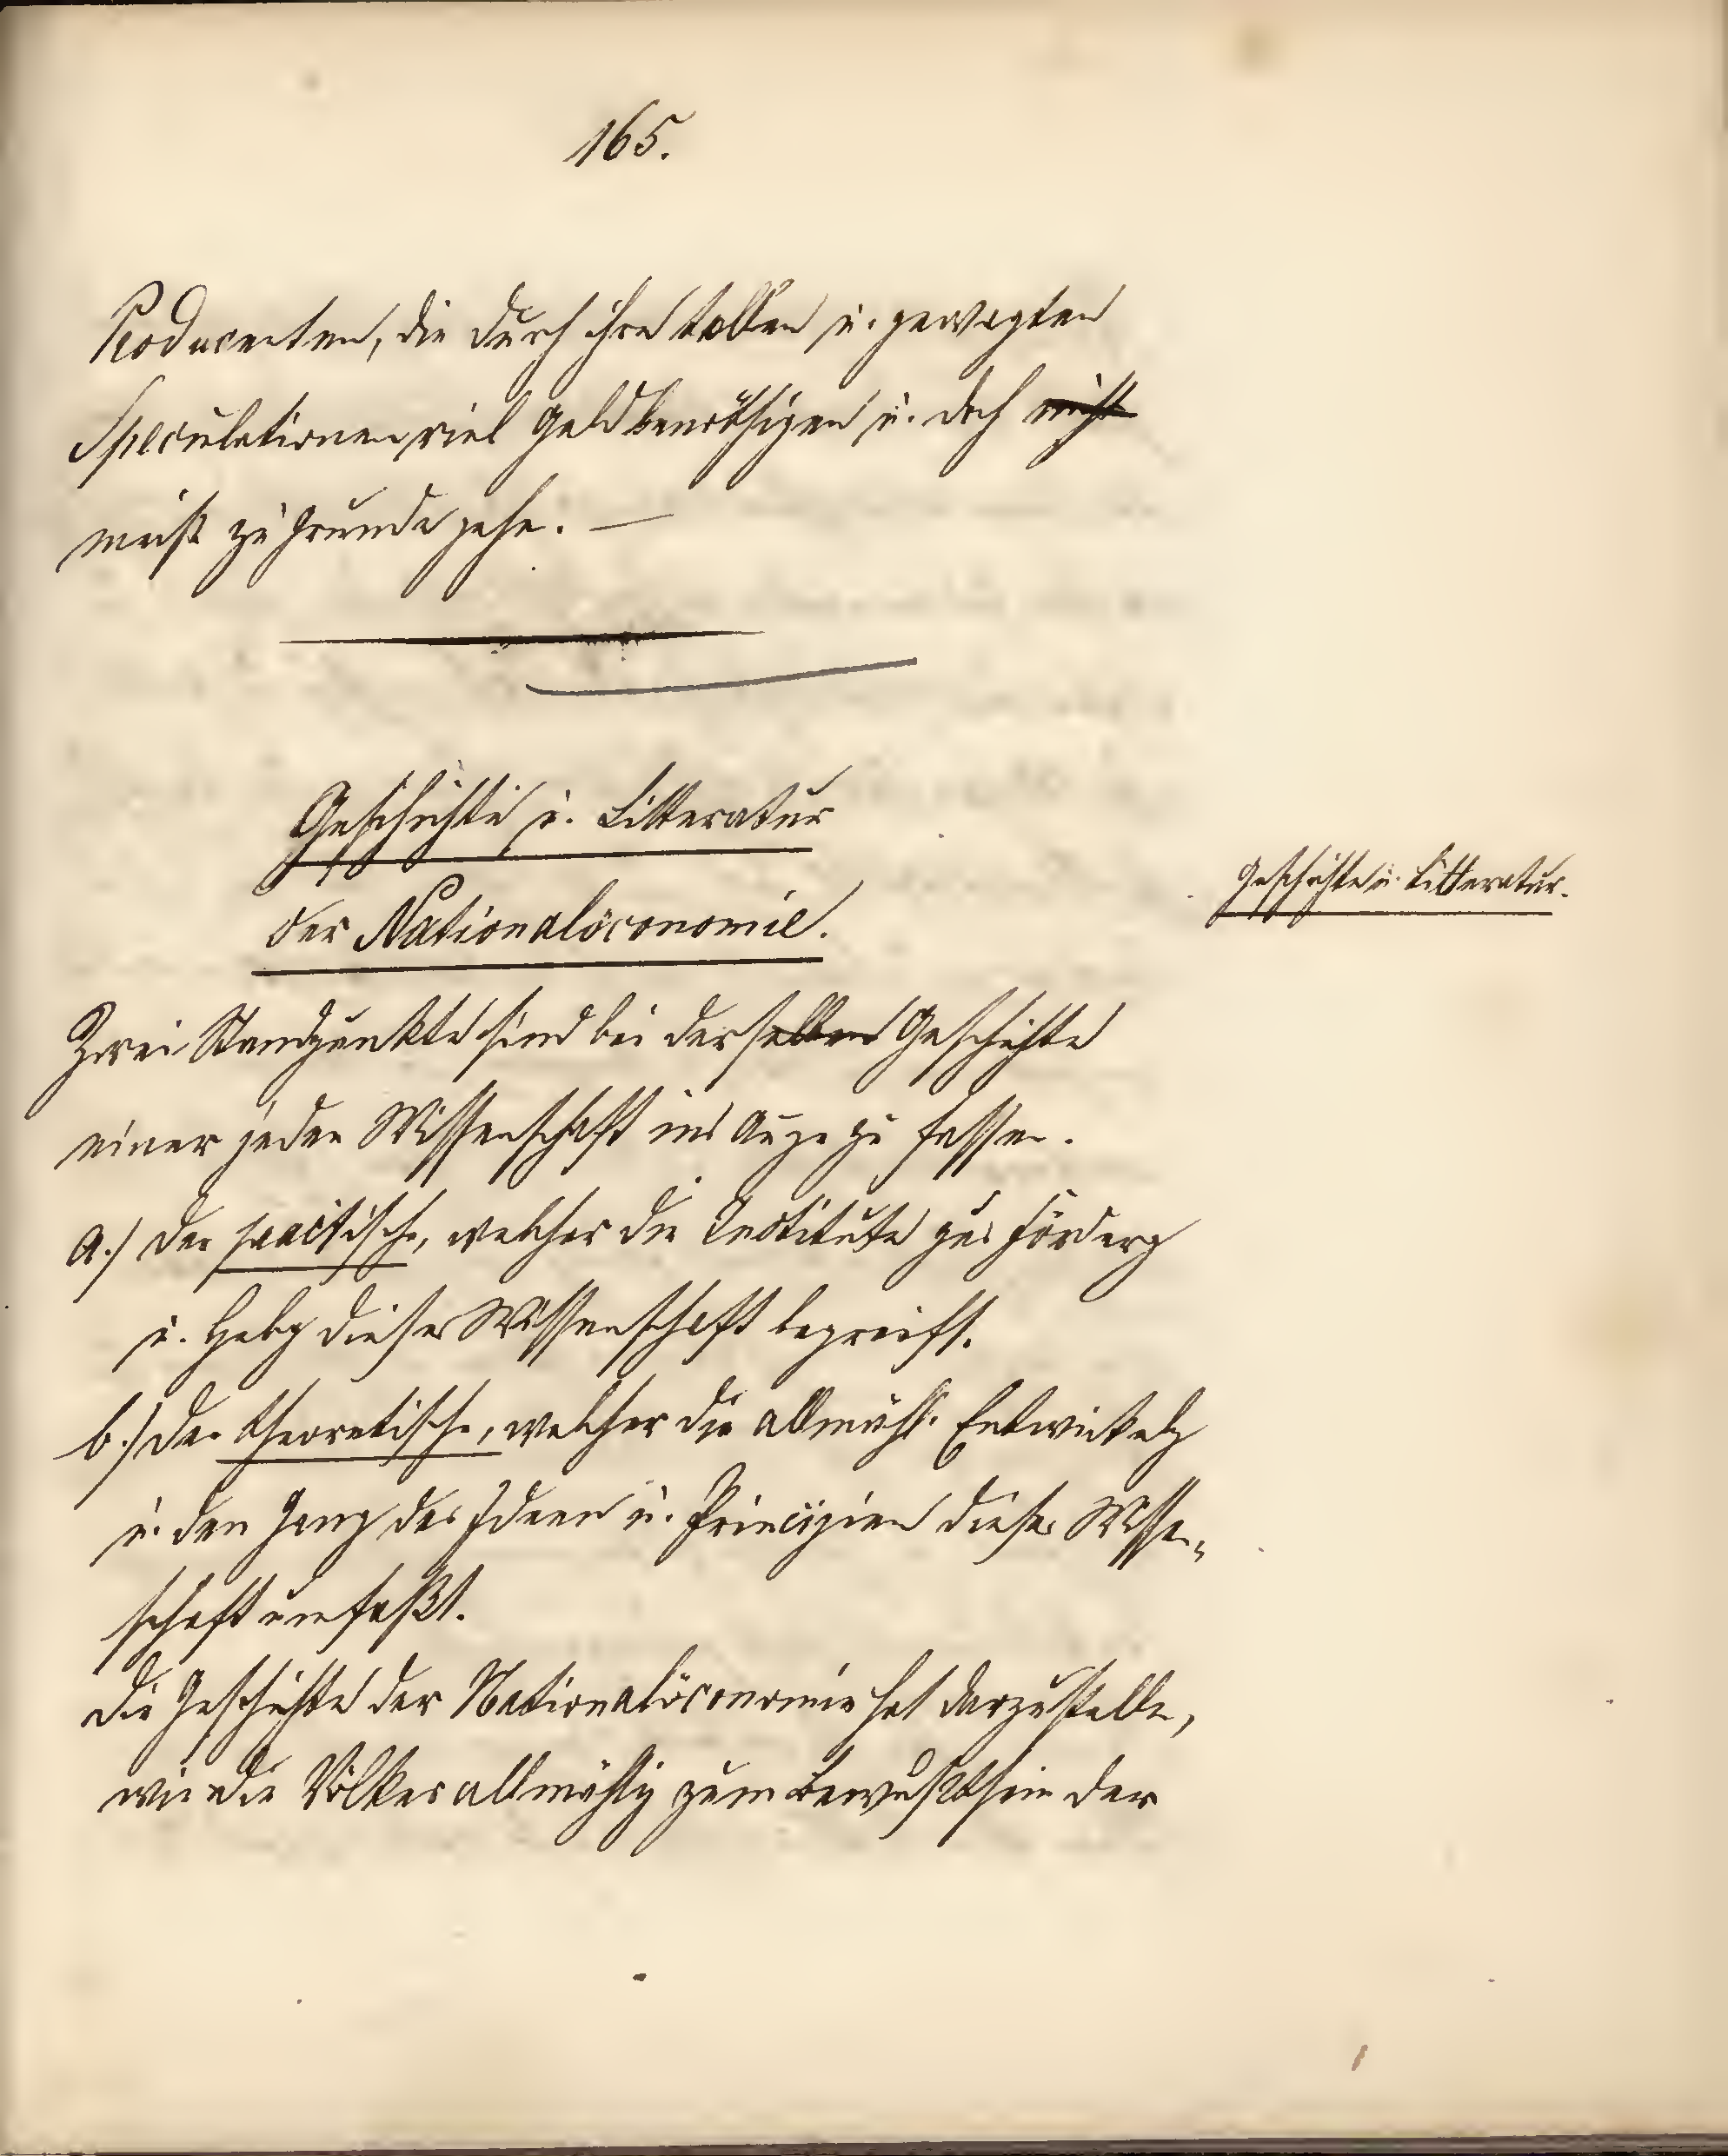 165.
Producenten, die durch ihre tollen u. gewagten
Speculationen viel Geld benöthigen u. doch nicht
meist zu Grunde gehe. —
Geschichte u. Litteratur
der Nationalöconomie.
Geschichte u. Litteratur.
Zwei Standpunkte sind bei derselben Geschichte
einer jeden Wissenschaft ins Auge zu fassen.
a.) der practische, welcher die Institute zur Förderg
u. Hebg dieser Wissenschaft begreift.
b.) der theoretische, welcher die allmähl. Entwickelg
u. den Gang der Ideen u. Principien dieser Wissen„
schaft umfaßt.
Die Geschichte der Nationalöconomie hat darzustellen,
wie die Völker allmählig zum Bewußtsein der